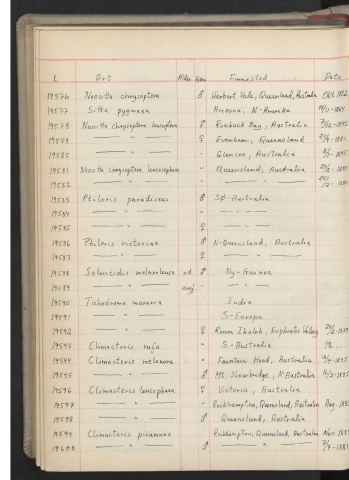 L. Art Alder Kjønn Finnested Dato
19576 Neositta chrysoptera ♂ Herbert Vale, Queensland, Australia Okt. 1882
19577 Sitta pygmaea " Arizona, N-Amerika
19578 Neositta chrysoptera leucoptera ♂ Roebuck Bay, Australia
19579 — " — — " — ♀ Evelyn, Queensland
19580 — " — — " — " Glencoe, Australia
19581 Neositta chrysoptera leucocephala " Queensland, Australia
19582 — " — — " —
19583 Ptiloris paradiseus ♂ SØ-Australia
19584 — " — " — " —
19585 — " — ♀ — " —
19586 Ptiloris victoriae ♂ N-Queensland, Australia
19587 — " — ♀ — " —
19588 Seleucidis melanoleuca ad ♂ Ny-Guinea
19589 — " — "
19590 Tichodroma muraria India
19591 — " — S-Europa
19592 — " — ♀ Euphrates Valley
19593 Climacteris rufa " S-Australia 18...
19594 Climacteris melanura " Fountain Head, Australia
19595 — " — ♂ Mt. Shawbridge, N Australia
19596 Climacteris leucophaea ♀ Victoria, Australia
19597 — " — " Rockhampton, Queensland, Australia Aug.
19598 — " — ♂ Queensland, Australia
19599 Climacteris picumnus " Rockhampton, Queensland, Australia Nov.
19600 — " — ♂ — " —